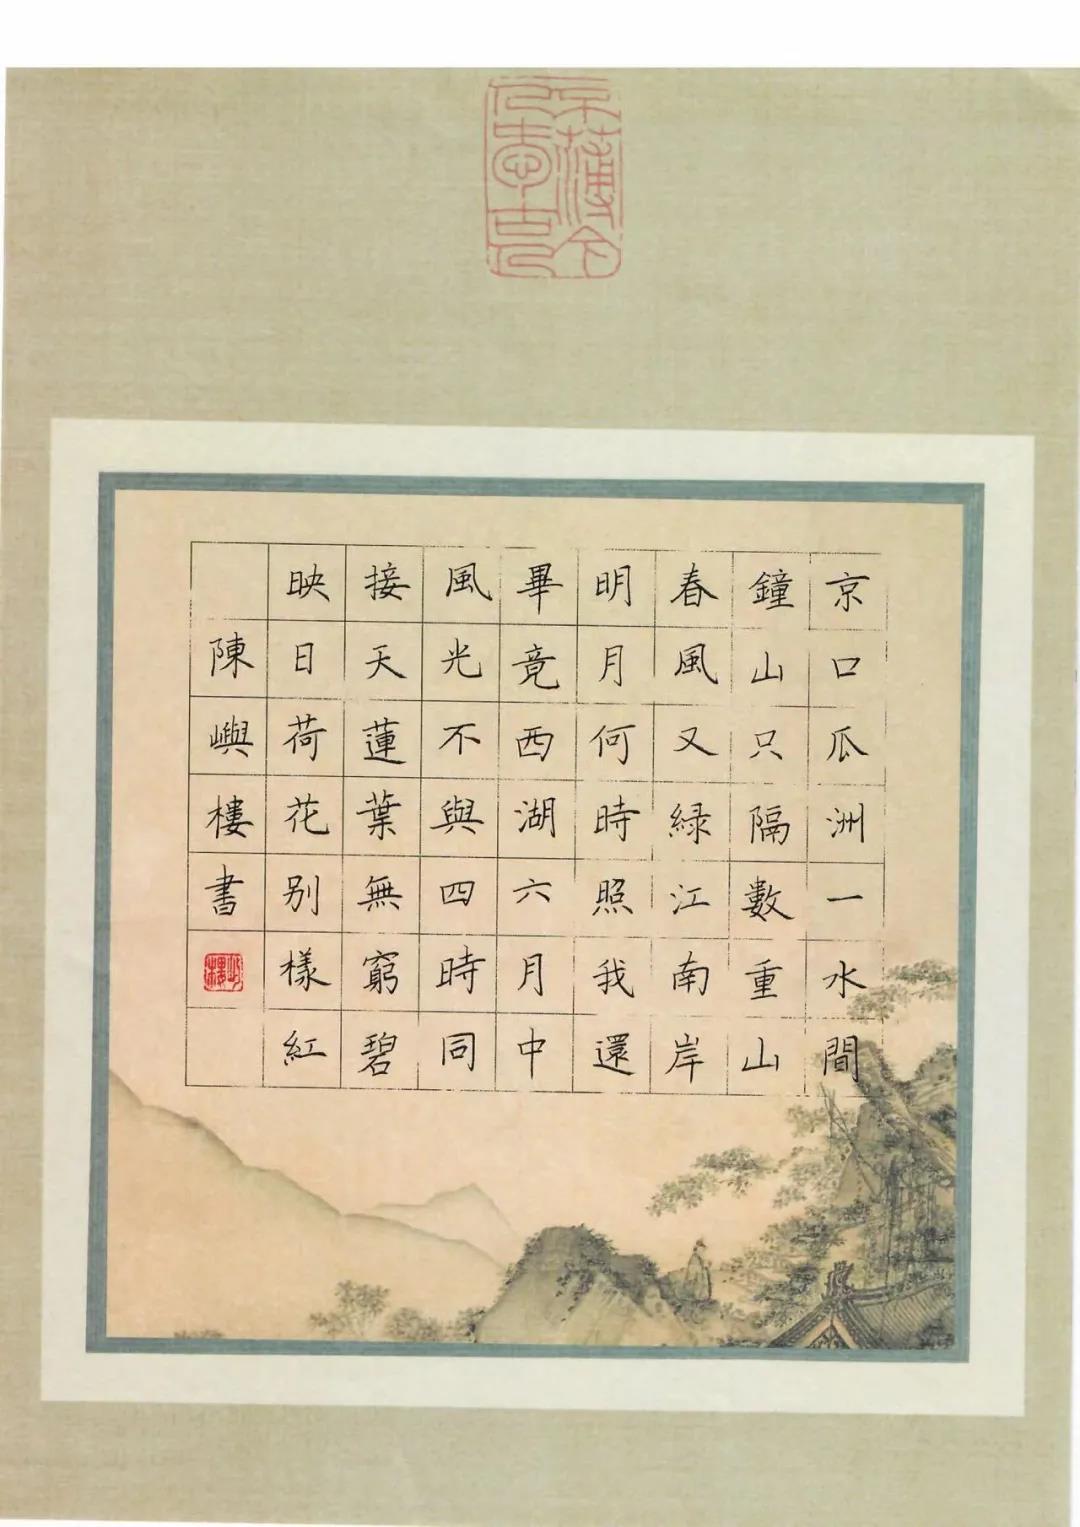 不薄今人愛古人
京口瓜洲一水間
鐘山只隔數重山
春風又緑江南岸
明月何時照我還
畢竟西湖六月中
風光不與四時同
接天蓮葉無窮碧
映日荷花别樣紅
陳嶼樓書